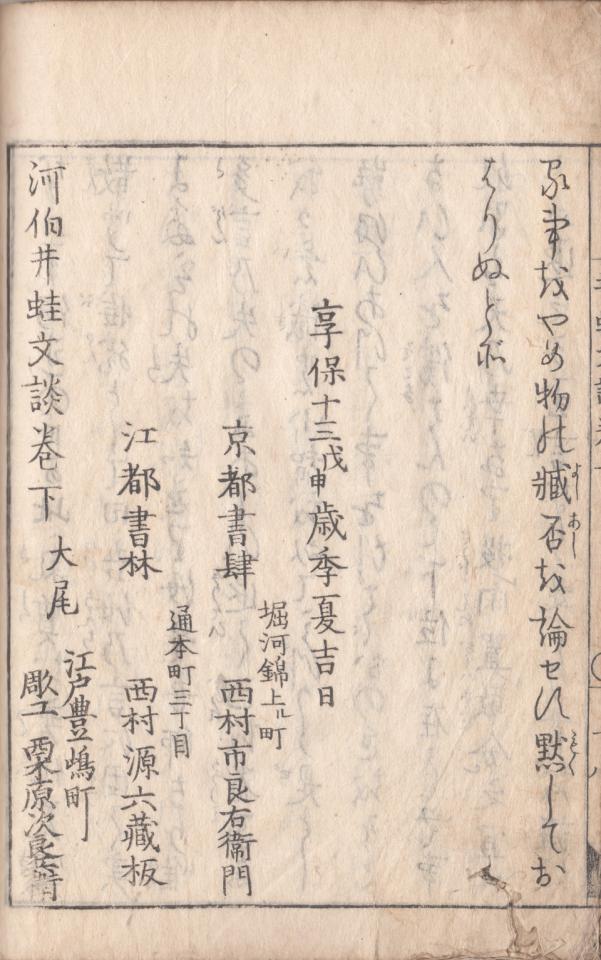 事をやめ物の臧否を論せす黙してお
はりぬとぞ
享保十三戊申歳季夏吉日
堀河錦上ル町
京都書肆 西村市良右衞門
通本町三丁目
江都書林 西村源六藏板
河伯井蛙文談巻下 大尾
江戸豊嶋町
彫工 栗原次良兵衛